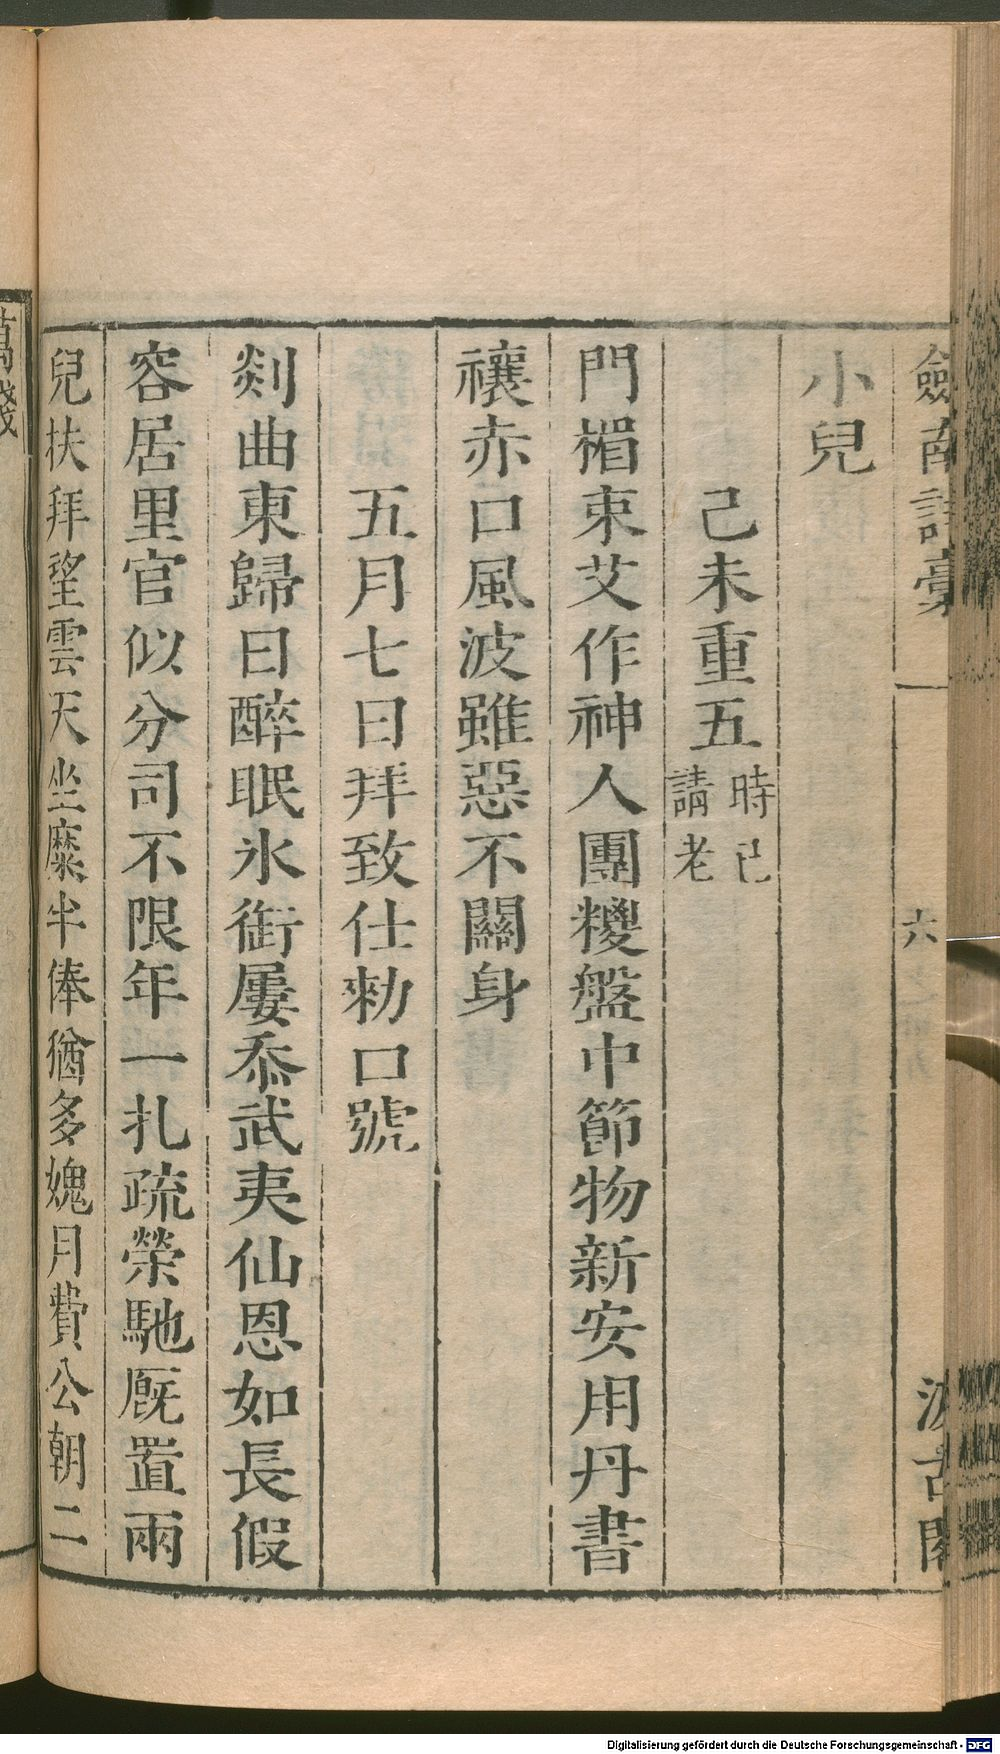 劍南詩稾
六
汲古閣
小兒
己未重五 時已請老
門楣束艾作神人團糉盤中節物新安用丹書
禳赤口風波雖惡不關身
五月七日拜致仕勑口號
剡曲東歸日醉眠氷銜屢忝武夷仙恩如長假
容居里官似分司不限年一扎疏榮馳厩置兩
兒扶拜望雲天坐糜半俸猶多媿月費公朝二
萬錢
Digitalisierung gefördert durch die Deutsche Forschungsgemeinschaft - DFG